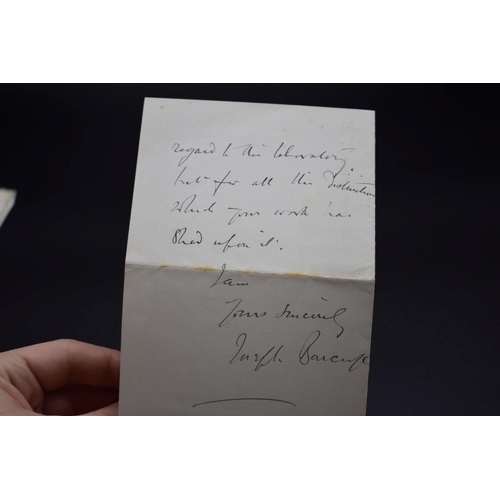 regard to this laboratory.
but for all the distinction
which your work has
shed upon it.
I am
Yours sincerely
Joseph Barcroft